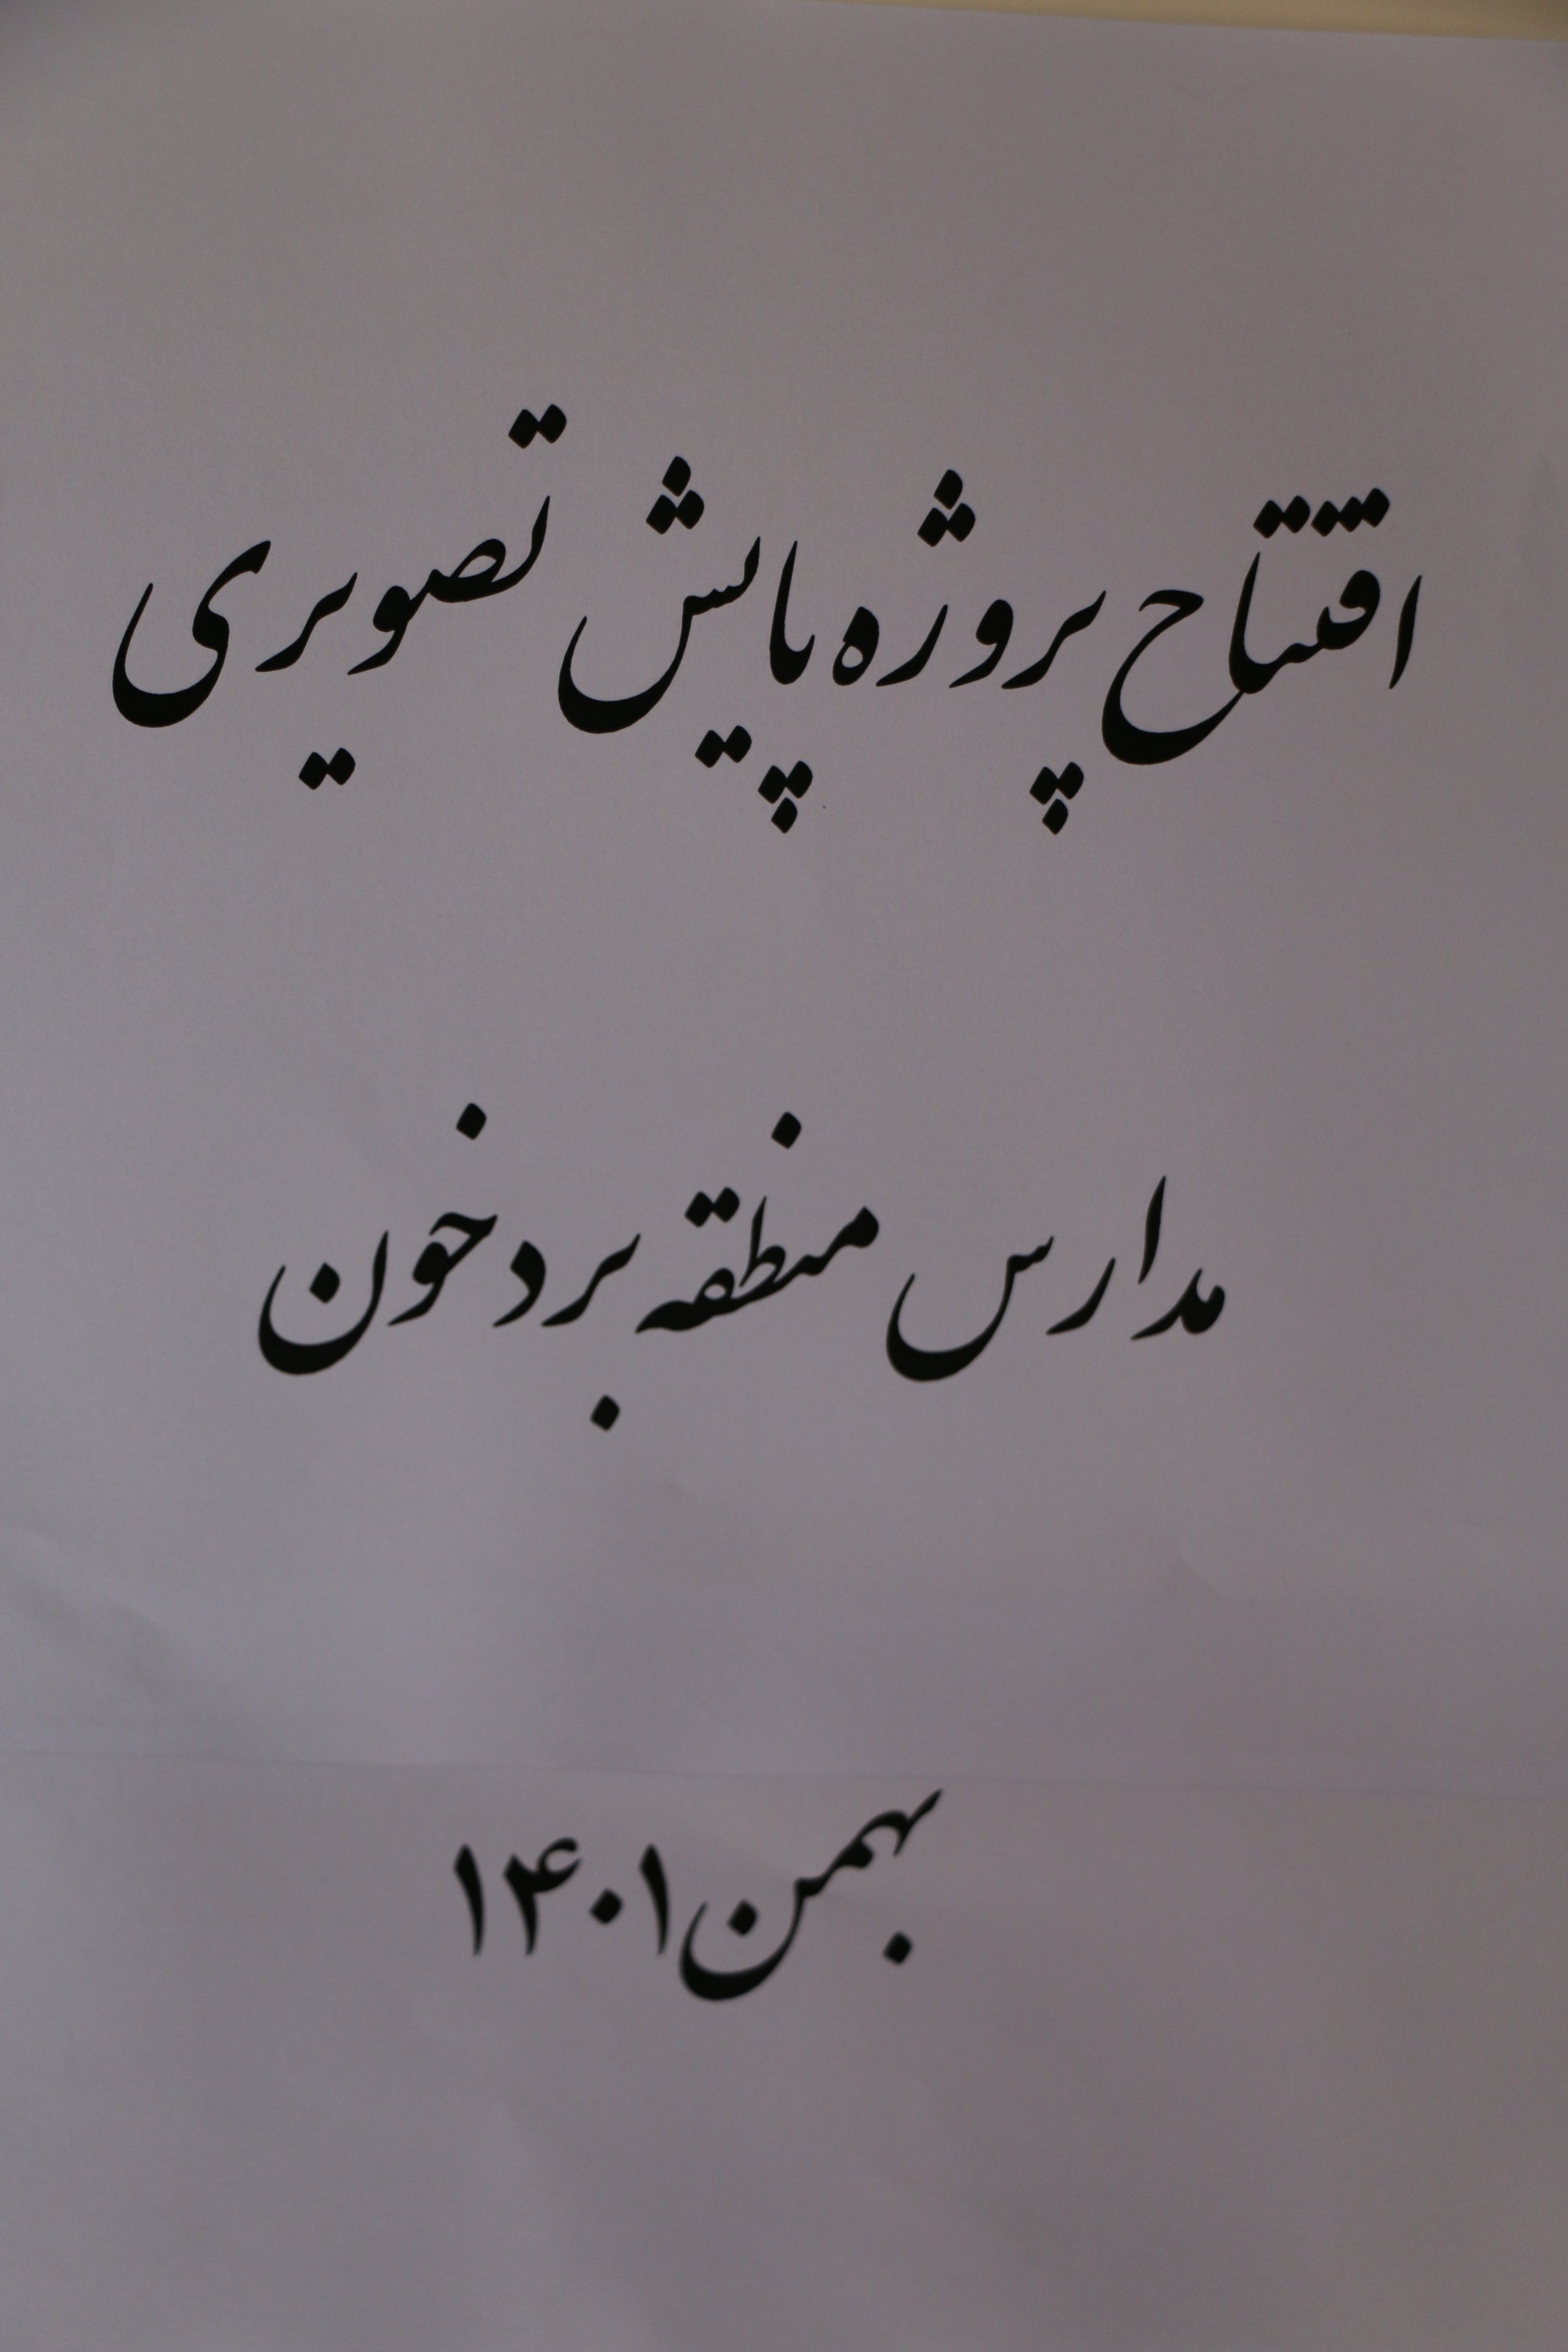 افتتاح پروژه پایش تصویری
مدارس منطقه بردخون
بهمن ۱۴۰۱